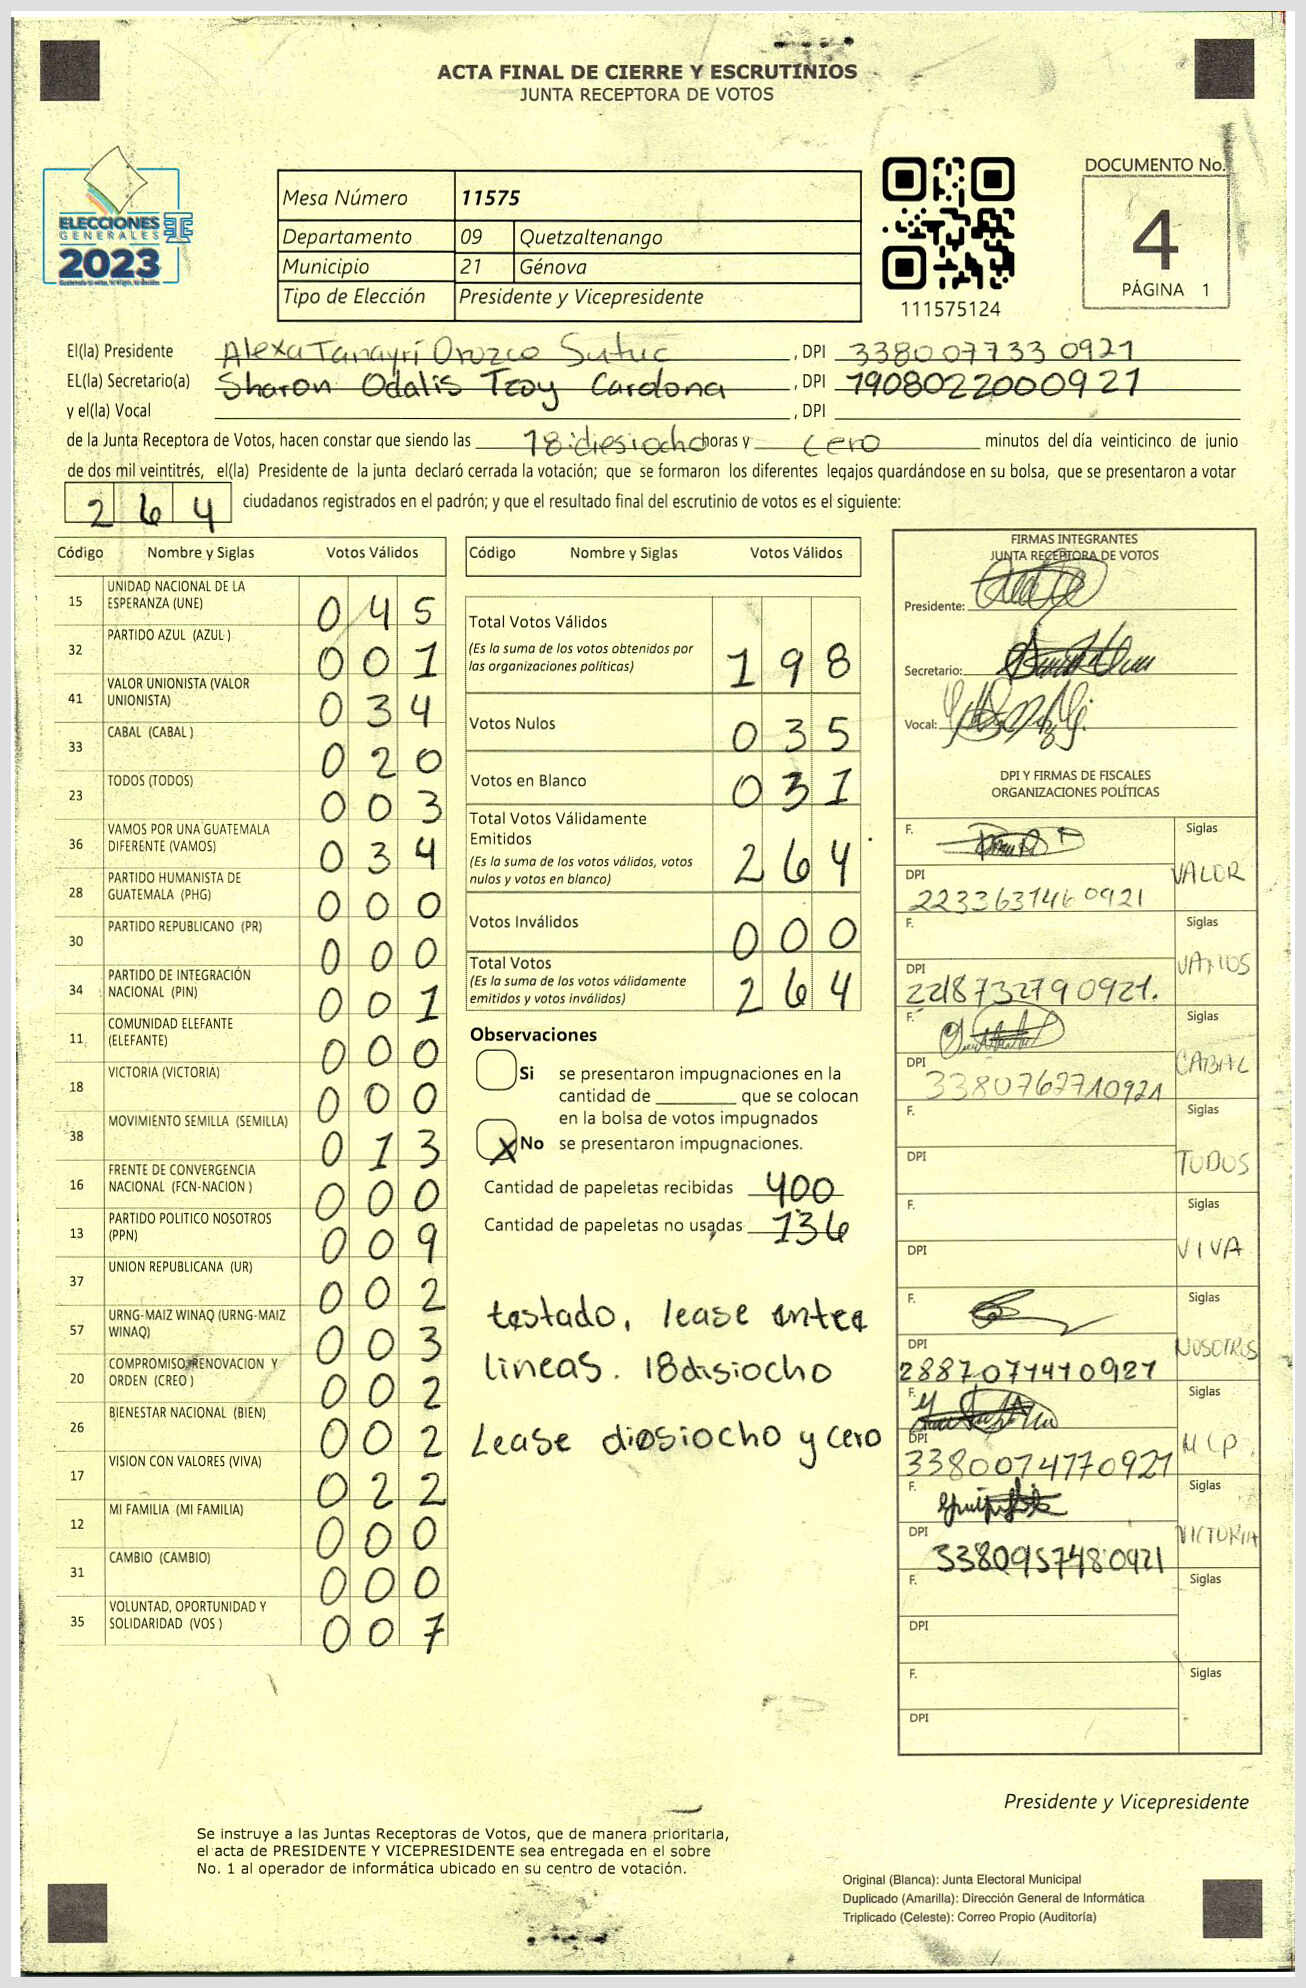 ACTA FINAL DE CIERRE Y ESCRUTINIOS
JUNTA RECEPTORA DE VOTOS
ELECCIONES
GENERALES
2023
Mesa Número 11575
Departamento 09 Quetzaltenango
Municipio 21 Génova
Tipo de Elección Presidente y Vicepresidente
111575124
DOCUMENTO No.
4
PÁGINA 1
El(la) Presidente Alexa Tanayrí Orozco Sutuc, DPI 3380077330921
EL(la) Secretario(a) Sharon Odalis Tzoy Cardona, DPI 1908022000921
y el(la) Vocal , DPI
de la Junta Receptora de Votos, hacen constar que siendo las 18:diesiocho horas y cero minutos del día veinticinco de junio
de dos mil veintitrés, el(la) Presidente de la junta declaró cerrada la votación; que se formaron los diferentes legajos guardándose en su bolsa, que se presentaron a votar
264 ciudadanos registrados en el padrón; y que el resultado final del escrutinio de votos es el siguiente:
Código Nombre y Siglas Votos Válidos
15 UNIDAD NACIONAL DE LA ESPERANZA (UNE) 045
32 PARTIDO AZUL (AZUL ) 001
41 VALOR UNIONISTA (VALOR UNIONISTA) 034
33 CABAL (CABAL ) 020
23 TODOS (TODOS) 003
36 VAMOS POR UNA GUATEMALA DIFERENTE (VAMOS) 034
28 PARTIDO HUMANISTA DE GUATEMALA (PHG) 000
30 PARTIDO REPUBLICANO (PR) 000
34 PARTIDO DE INTEGRACIÓN NACIONAL (PIN) 001
11 COMUNIDAD ELEFANTE (ELEFANTE) 000
18 VICTORIA (VICTORIA) 000
38 MOVIMIENTO SEMILLA (SEMILLA) 013
16 FRENTE DE CONVERGENCIA NACIONAL (FCN-NACION ) 000
13 PARTIDO POLITICO NOSOTROS (PPN) 009
37 UNION REPUBLICANA (UR) 002
57 URNG-MAIZ WINAQ (URNG-MAIZ WINAQ) 003
20 COMPROMISO, RENOVACION Y ORDEN (CREO ) 002
26 BIENESTAR NACIONAL (BIEN) 002
17 VISION CON VALORES (VIVA) 022
12 MI FAMILIA (MI FAMILIA) 000
31 CAMBIO (CAMBIO) 000
35 VOLUNTAD, OPORTUNIDAD Y SOLIDARIDAD (VOS ) 007
Código Nombre y Siglas Votos Válidos
Total Votos Válidos
(Es la suma de los votos obtenidos por
las organizaciones políticas) 198
Votos Nulos 035
Votos en Blanco 031
Total Votos Válidamente
Emitidos
(Es la suma de los votos válidos, votos
nulos y votos en blanco) 264
Votos Inválidos 000
Total Votos
(Es la suma de los votos válidamente
emitidos y votos inválidos) 264
Observaciones
Si se presentaron impugnaciones en la
cantidad de ________ que se colocan
en la bolsa de votos impugnados
X No se presentaron impugnaciones.
Cantidad de papeletas recibidas 400
Cantidad de papeletas no usadas 136
testado, lease entre
lineas. 18disiocho
Lease diosiocho y cero
FIRMAS INTEGRANTES
JUNTA RECEPTORA DE VOTOS
Presidente:
Secretario:
Vocal:
DPI Y FIRMAS DE FISCALES
ORGANIZACIONES POLÍTICAS
F. Siglas
VALOR
DPI
2233631460921
F. Siglas
VAMOS
DPI
2218732790921.
F. Siglas
CABAL
DPI
3380762710921
F. Siglas
DPI
TODOS
F. Siglas
DPI
VIVA
F. Siglas
DPI
NOSOTROS
2887071410921
F. Siglas
DPI
MLP
3380074770921
F. Siglas
DPI
VICTORIA
3380957480921
F. Siglas
DPI
F. Siglas
DPI
Presidente y Vicepresidente
Se instruye a las Juntas Receptoras de Votos, que de manera prioritaria,
el acta de PRESIDENTE Y VICEPRESIDENTE sea entregada en el sobre
No. 1 al operador de informática ubicado en su centro de votación.
Original (Blanca): Junta Electoral Municipal
Duplicado (Amarilla): Dirección General de Informática
Triplicado (Celeste): Correo Propio (Auditoría)